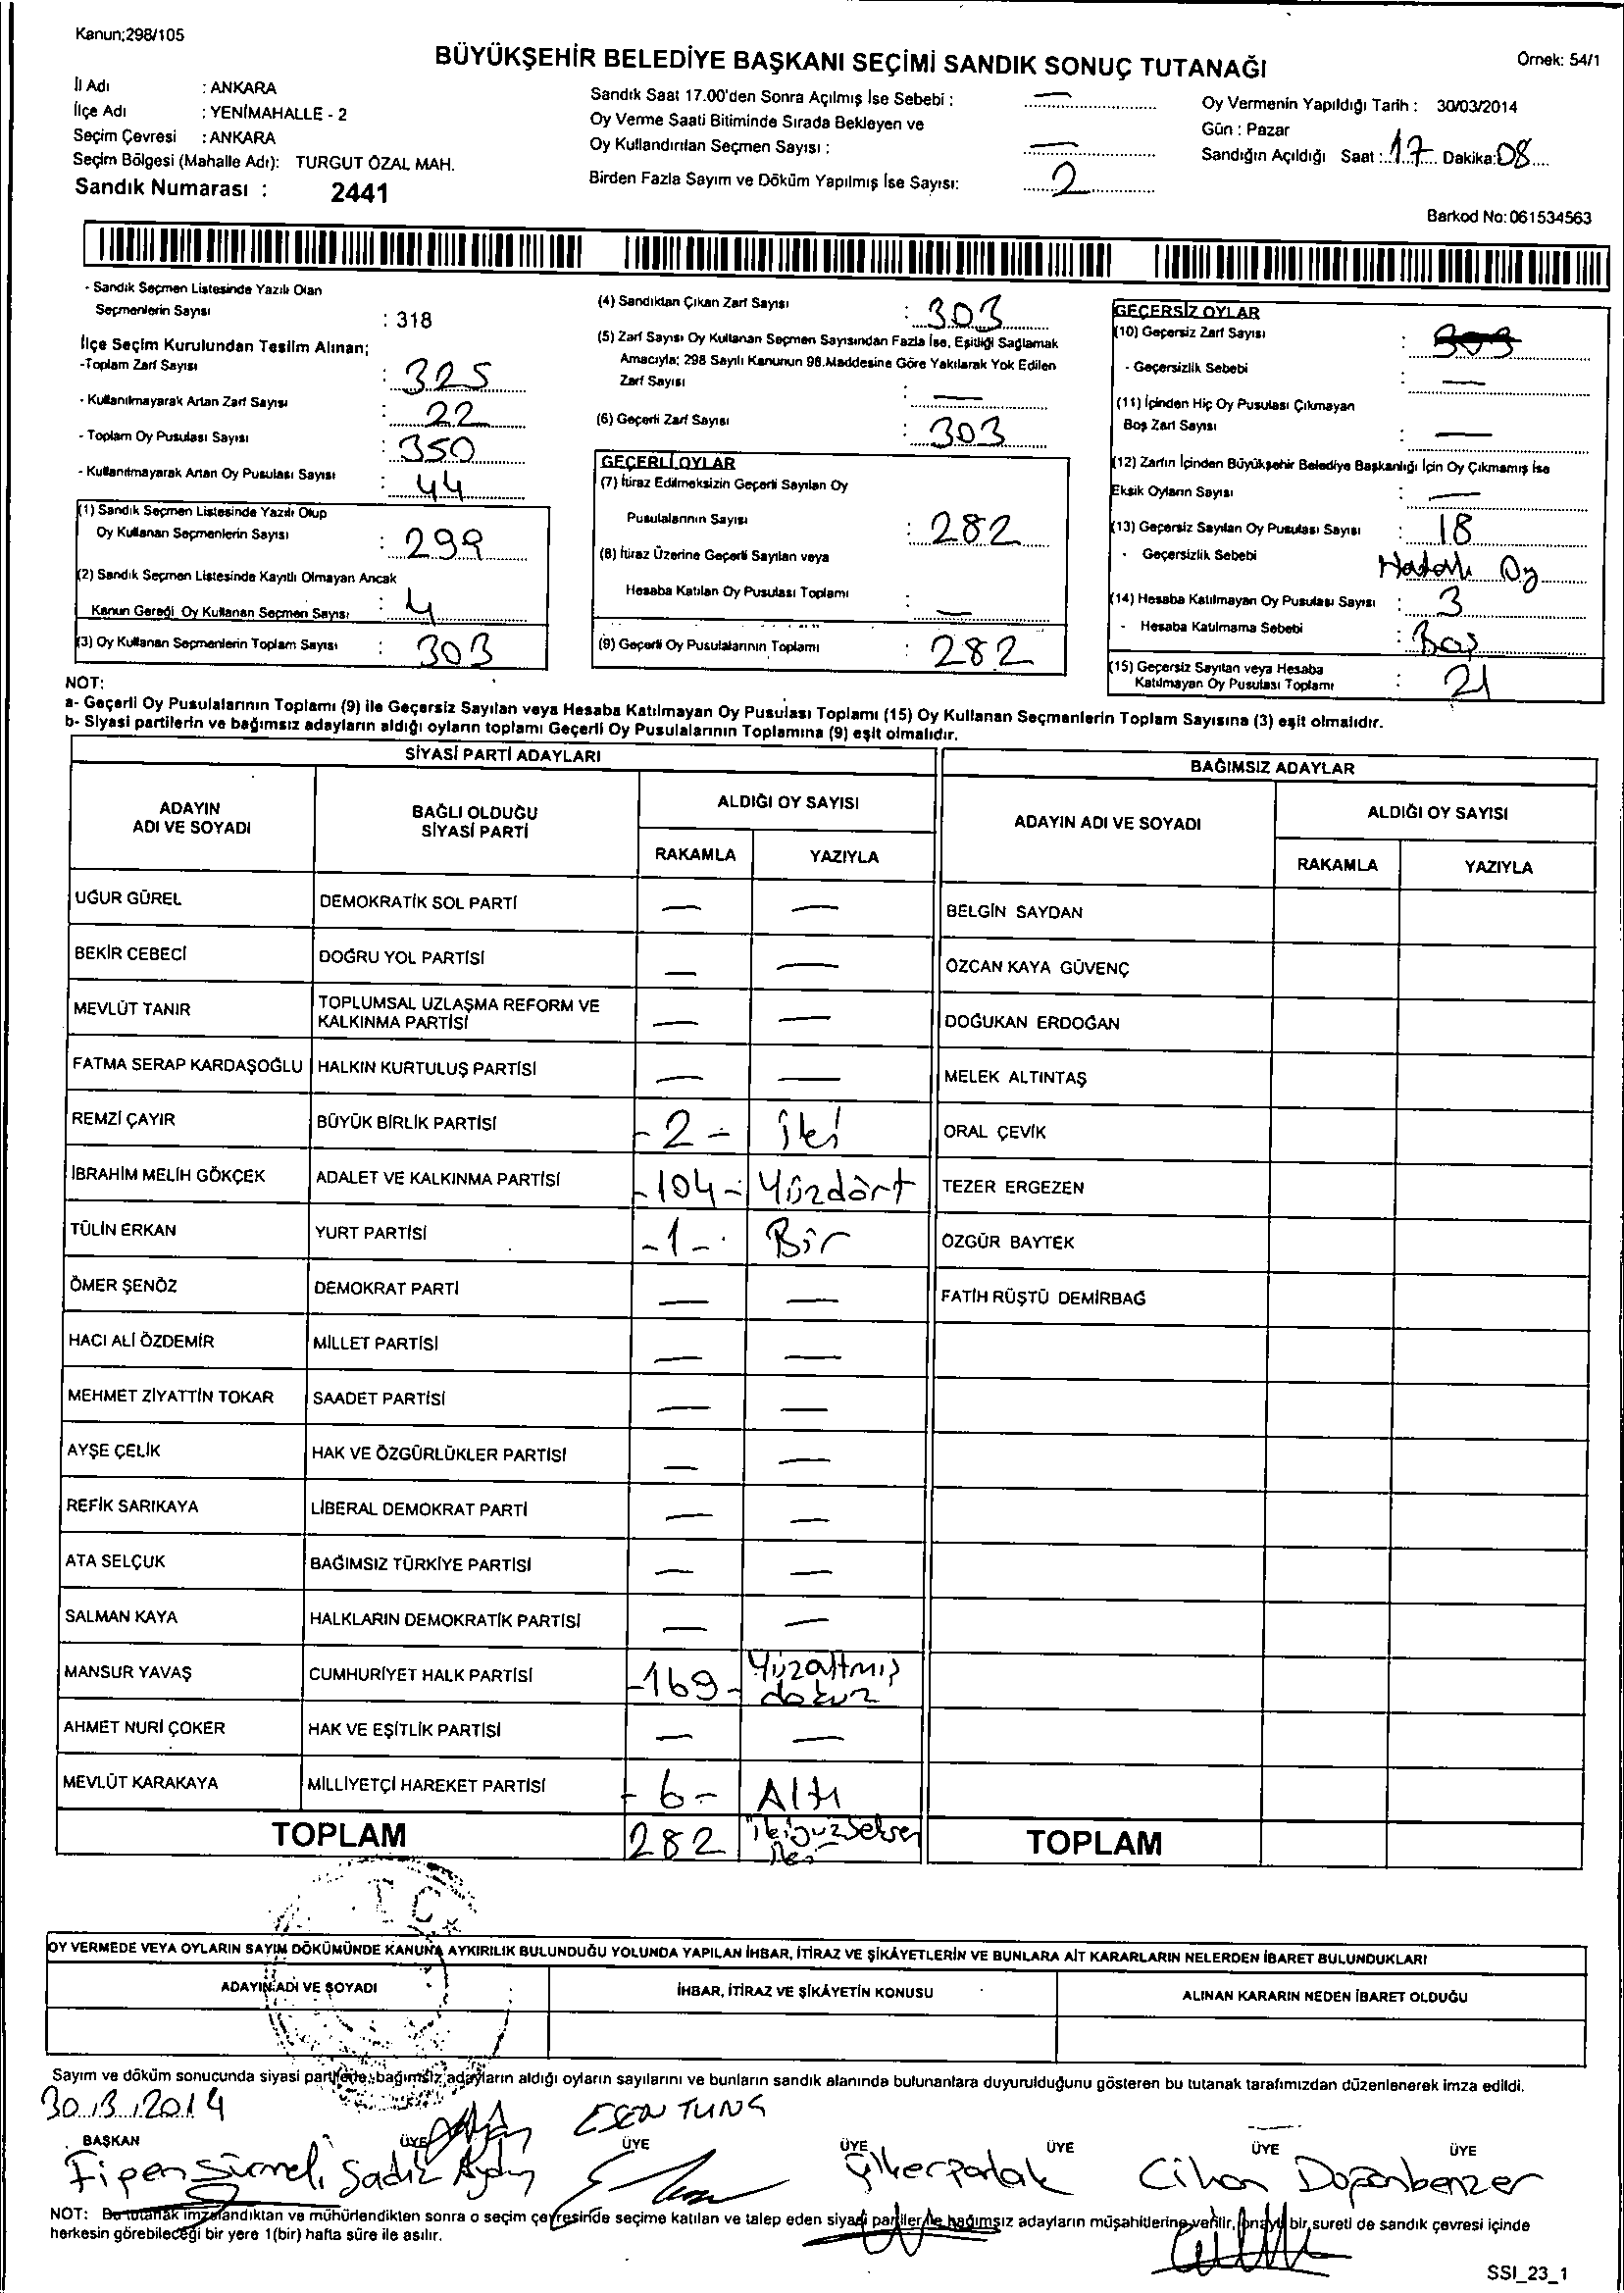 Kanun;298/105
BÜYÜKŞEHİR BELEDİYE BAŞKANI SEÇİMİ SANDIK SONUÇ TUTANAĞI
Örnek: 54/1
İl Adı : ANKARA
İlçe Adı : YENİMAHALLE - 2
Seçim Çevresi : ANKARA
Seçim Bölgesi (Mahalle Adı): TURGUT ÖZAL MAH.
Sandık Numarası : 2441
Sandık Saat 17.00'den Sonra Açılmış İse Sebebi : —
Oy Verme Saati Bitiminde Sırada Bekleyen ve
Oy Kullandırılan Seçmen Sayısı : —
Birden Fazla Sayım ve Döküm Yapılmış İse Sayısı: 2
Oy Vermenin Yapıldığı Tarih : 30/03/2014
Gün : Pazar
Sandığın Açıldığı Saat : 17 Dakika: 08
Barkod No: 061534563
- Sandık Seçmen Listesinde Yazılı Olan
Seçmenlerin Sayısı : 318
İlçe Seçim Kurulundan Teslim Alınan;
-Toplam Zarf Sayısı : 325
- Kullanılmayarak Artan Zarf Sayısı : 22
- Toplam Oy Pusulası Sayısı : 350
- Kullanılmayarak Artan Oy Pusulası Sayısı : 44
(1) Sandık Seçmen Listesinde Yazılı Olup
Oy Kullanan Seçmenlerin Sayısı : 299
(2) Sandık Seçmen Listesinde Kayıtlı Olmayan Ancak
Kanun Gereği Oy Kullanan Seçmen Sayısı : 4
(3) Oy Kullanan Seçmenlerin Toplam Sayısı : 303
(4) Sandıktan Çıkan Zarf Sayısı : 303
(5) Zarf Sayısı Oy Kullanan Seçmen Sayısından Fazla İse, Eşitliği Sağlamak
Amacıyla; 298 Sayılı Kanunun 98.Maddesine Göre Yakılarak Yok Edilen
Zarf Sayısı : —
(6) Geçerli Zarf Sayısı : 303
GEÇERLİ OYLAR
(7) İtiraz Edilmeksizin Geçerli Sayılan Oy
Pusulalarının Sayısı : 282
(8) İtiraz Üzerine Geçerli Sayılan veya
Hesaba Katılan Oy Pusulası Toplamı : —
(9) Geçerli Oy Pusulalarının Toplamı : 282
GEÇERSİZ OYLAR
(10) Geçersiz Zarf Sayısı : 303
- Geçersizlik Sebebi : —
(11) İçinden Hiç Oy Pusulası Çıkmayan
Boş Zarf Sayısı : —
(12) Zarfın İçinden Büyükşehir Belediye Başkanlığı İçin Oy Çıkmamış İse
Eksik Oyların Sayısı : —
(13) Geçersiz Sayılan Oy Pusulası Sayısı : 18
- Geçersizlik Sebebi Hatalı Oy
(14) Hesaba Katılmayan Oy Pusulası Sayısı : 3
- Hesaba Katılmama Sebebi : Boş
(15) Geçersiz Sayılan veya Hesaba
Katılmayan Oy Pusulası Toplamı : 21
NOT:
a- Geçerli Oy Pusulalarının Toplamı (9) ile Geçersiz Sayılan veya Hesaba Katılmayan Oy Pusulası Toplamı (15) Oy Kullanan Seçmenlerin Toplam Sayısına (3) eşit olmalıdır.
b- Siyasi partilerin ve bağımsız adayların aldığı oyların toplamı Geçerli Oy Pusulalarının Toplamına (9) eşit olmalıdır.
SİYASİ PARTİ ADAYLARI
ADAYIN ADI VE SOYADI
BAĞLI OLDUĞU SİYASİ PARTİ
ALDIĞI OY SAYISI
RAKAMLA YAZIYLA
UĞUR GÜREL DEMOKRATİK SOL PARTİ — —
BEKİR CEBECİ DOĞRU YOL PARTİSİ — —
MEVLÜT TANIR TOPLUMSAL UZLAŞMA REFORM VE KALKINMA PARTİSİ — —
FATMA SERAP KARDAŞOĞLU HALKIN KURTULUŞ PARTİSİ — —
REMZİ ÇAYIR BÜYÜK BİRLİK PARTİSİ -2- iki
İBRAHİM MELİH GÖKÇEK ADALET VE KALKINMA PARTİSİ -104- Yüzdört
TÜLİN ERKAN YURT PARTİSİ -1- Bir
ÖMER ŞENÖZ DEMOKRAT PARTİ — —
HACI ALİ ÖZDEMİR MİLLET PARTİSİ — —
MEHMET ZİYATTİN TOKAR SAADET PARTİSİ — —
AYŞE ÇELİK HAK VE ÖZGÜRLÜKLER PARTİSİ — —
REFİK SARIKAYA LİBERAL DEMOKRAT PARTİ — —
ATA SELÇUK BAĞIMSIZ TÜRKİYE PARTİSİ — —
SALMAN KAYA HALKLARIN DEMOKRATİK PARTİSİ — —
MANSUR YAVAŞ CUMHURİYET HALK PARTİSİ -169- Yüzaltmış dokuz
AHMET NURİ ÇOKER HAK VE EŞİTLİK PARTİSİ — —
MEVLÜT KARAKAYA MİLLİYETÇİ HAREKET PARTİSİ -6- Altı
TOPLAM 282 ikiyüzseksen iki
BAĞIMSIZ ADAYLAR
ADAYIN ADI VE SOYADI
ALDIĞI OY SAYISI
RAKAMLA YAZIYLA
BELGİN SAYDAN
ÖZCAN KAYA GÜVENÇ
DOĞUKAN ERDOĞAN
MELEK ALTINTAŞ
ORAL ÇEVİK
TEZER ERGEZEN
ÖZGÜR BAYTEK
FATİH RÜŞTÜ DEMİRBAĞ
TOPLAM
T.C.
OY VERMEDE VEYA OYLARIN SAYIM DÖKÜMÜNDE KANUNA AYKIRILIK BULUNDUĞU YOLUNDA YAPILAN İHBAR, İTİRAZ VE ŞİKÂYETLERİN VE BUNLARA AİT KARARLARIN NELERDEN İBARET BULUNDUKLARI
ADAYIN ADI VE SOYADI
İHBAR, İTİRAZ VE ŞİKÂYETİN KONUSU
ALINAN KARARIN NEDEN İBARET OLDUĞU
Sayım ve döküm sonucunda siyasi partilerle, bağımsız adayların aldığı oyların sayılarını ve bunların sandık alanında bulunanlara duyurulduğunu gösteren bu tutanak tarafımızdan düzenlenerek imza edildi.
30.3.2014
ESEN TUNG
BAŞKAN ÜYE ÜYE ÜYE ÜYE ÜYE ÜYE
Sadık Aydın
Cihan Doğanbenzer
NOT: Bu tutanak imzalandıktan ve mühürlendikten sonra o seçim çevresinde seçime katılan ve talep eden siyasi partiler ile bağımsız adayların müşahitlerine verilir, onaylı bir sureti de sandık çevresi içinde
herkesin görebileceği bir yere 1(bir) hafta süre ile asılır.
SSI_23_1